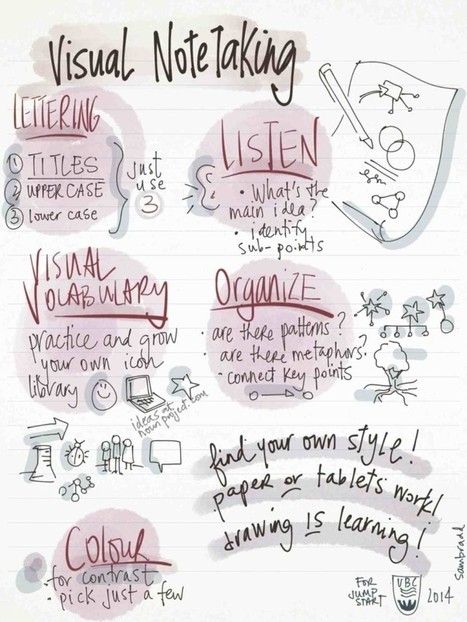 Visual NoteTaking
LETTERING
① TITLES
② UPPER CASE
③ lower case
just
use
③
LISTEN
• What's the
main idea?
• identify
sub-points
VISUAL
VOCABULARY
practice and grow
your own icon
library
ideas at
noun project.com
Organize
• are there patterns?
• are there metaphors?
• connect key points
find your own style!
paper or tablets work!
drawing IS learning!
Colour
• for contrast
• pick just a few
FOR
JUMP
START
UBC
2014
sambradd